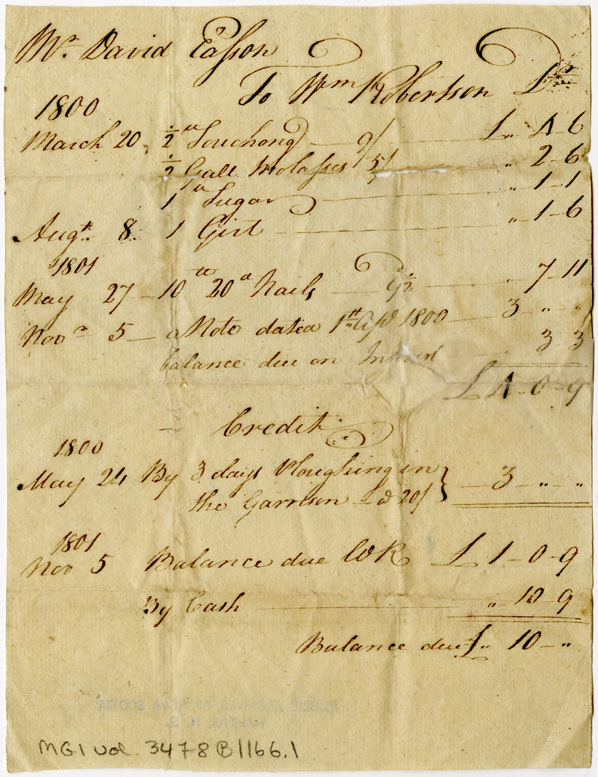 Mr. David Easson
To Wm Robertson £
1800
March 20 ½ lb Souchong 9/ £ „ 4 - 6
½ Gall Molasses 5/ „ 2 - 6
1 lb Sugar „ 1 - 1
Augt. 8. 1 Girt „ 1 - 6
1801
May 27 - 10 lb 20d Nails 9½ „ 7 - 11
Novr 5 - a Note dated 1st 1800 3 „ „
balance due on Intrest 3 3
£ 4 - 0 - 9
Credit
1800
May 24 By 3 days Ploughing in
the Garrison a 20/ } 3 „ „
1801
Nov 5 Balance due WR £ 1 - 0 - 9
By Cash „ 10 - 9
Balance due £ „ 10 - „
PUBLIC ARCHIVES OF NOVA SCOTIA
HALIFAX, N. S.
MG1 vol. 3478 B/166.1